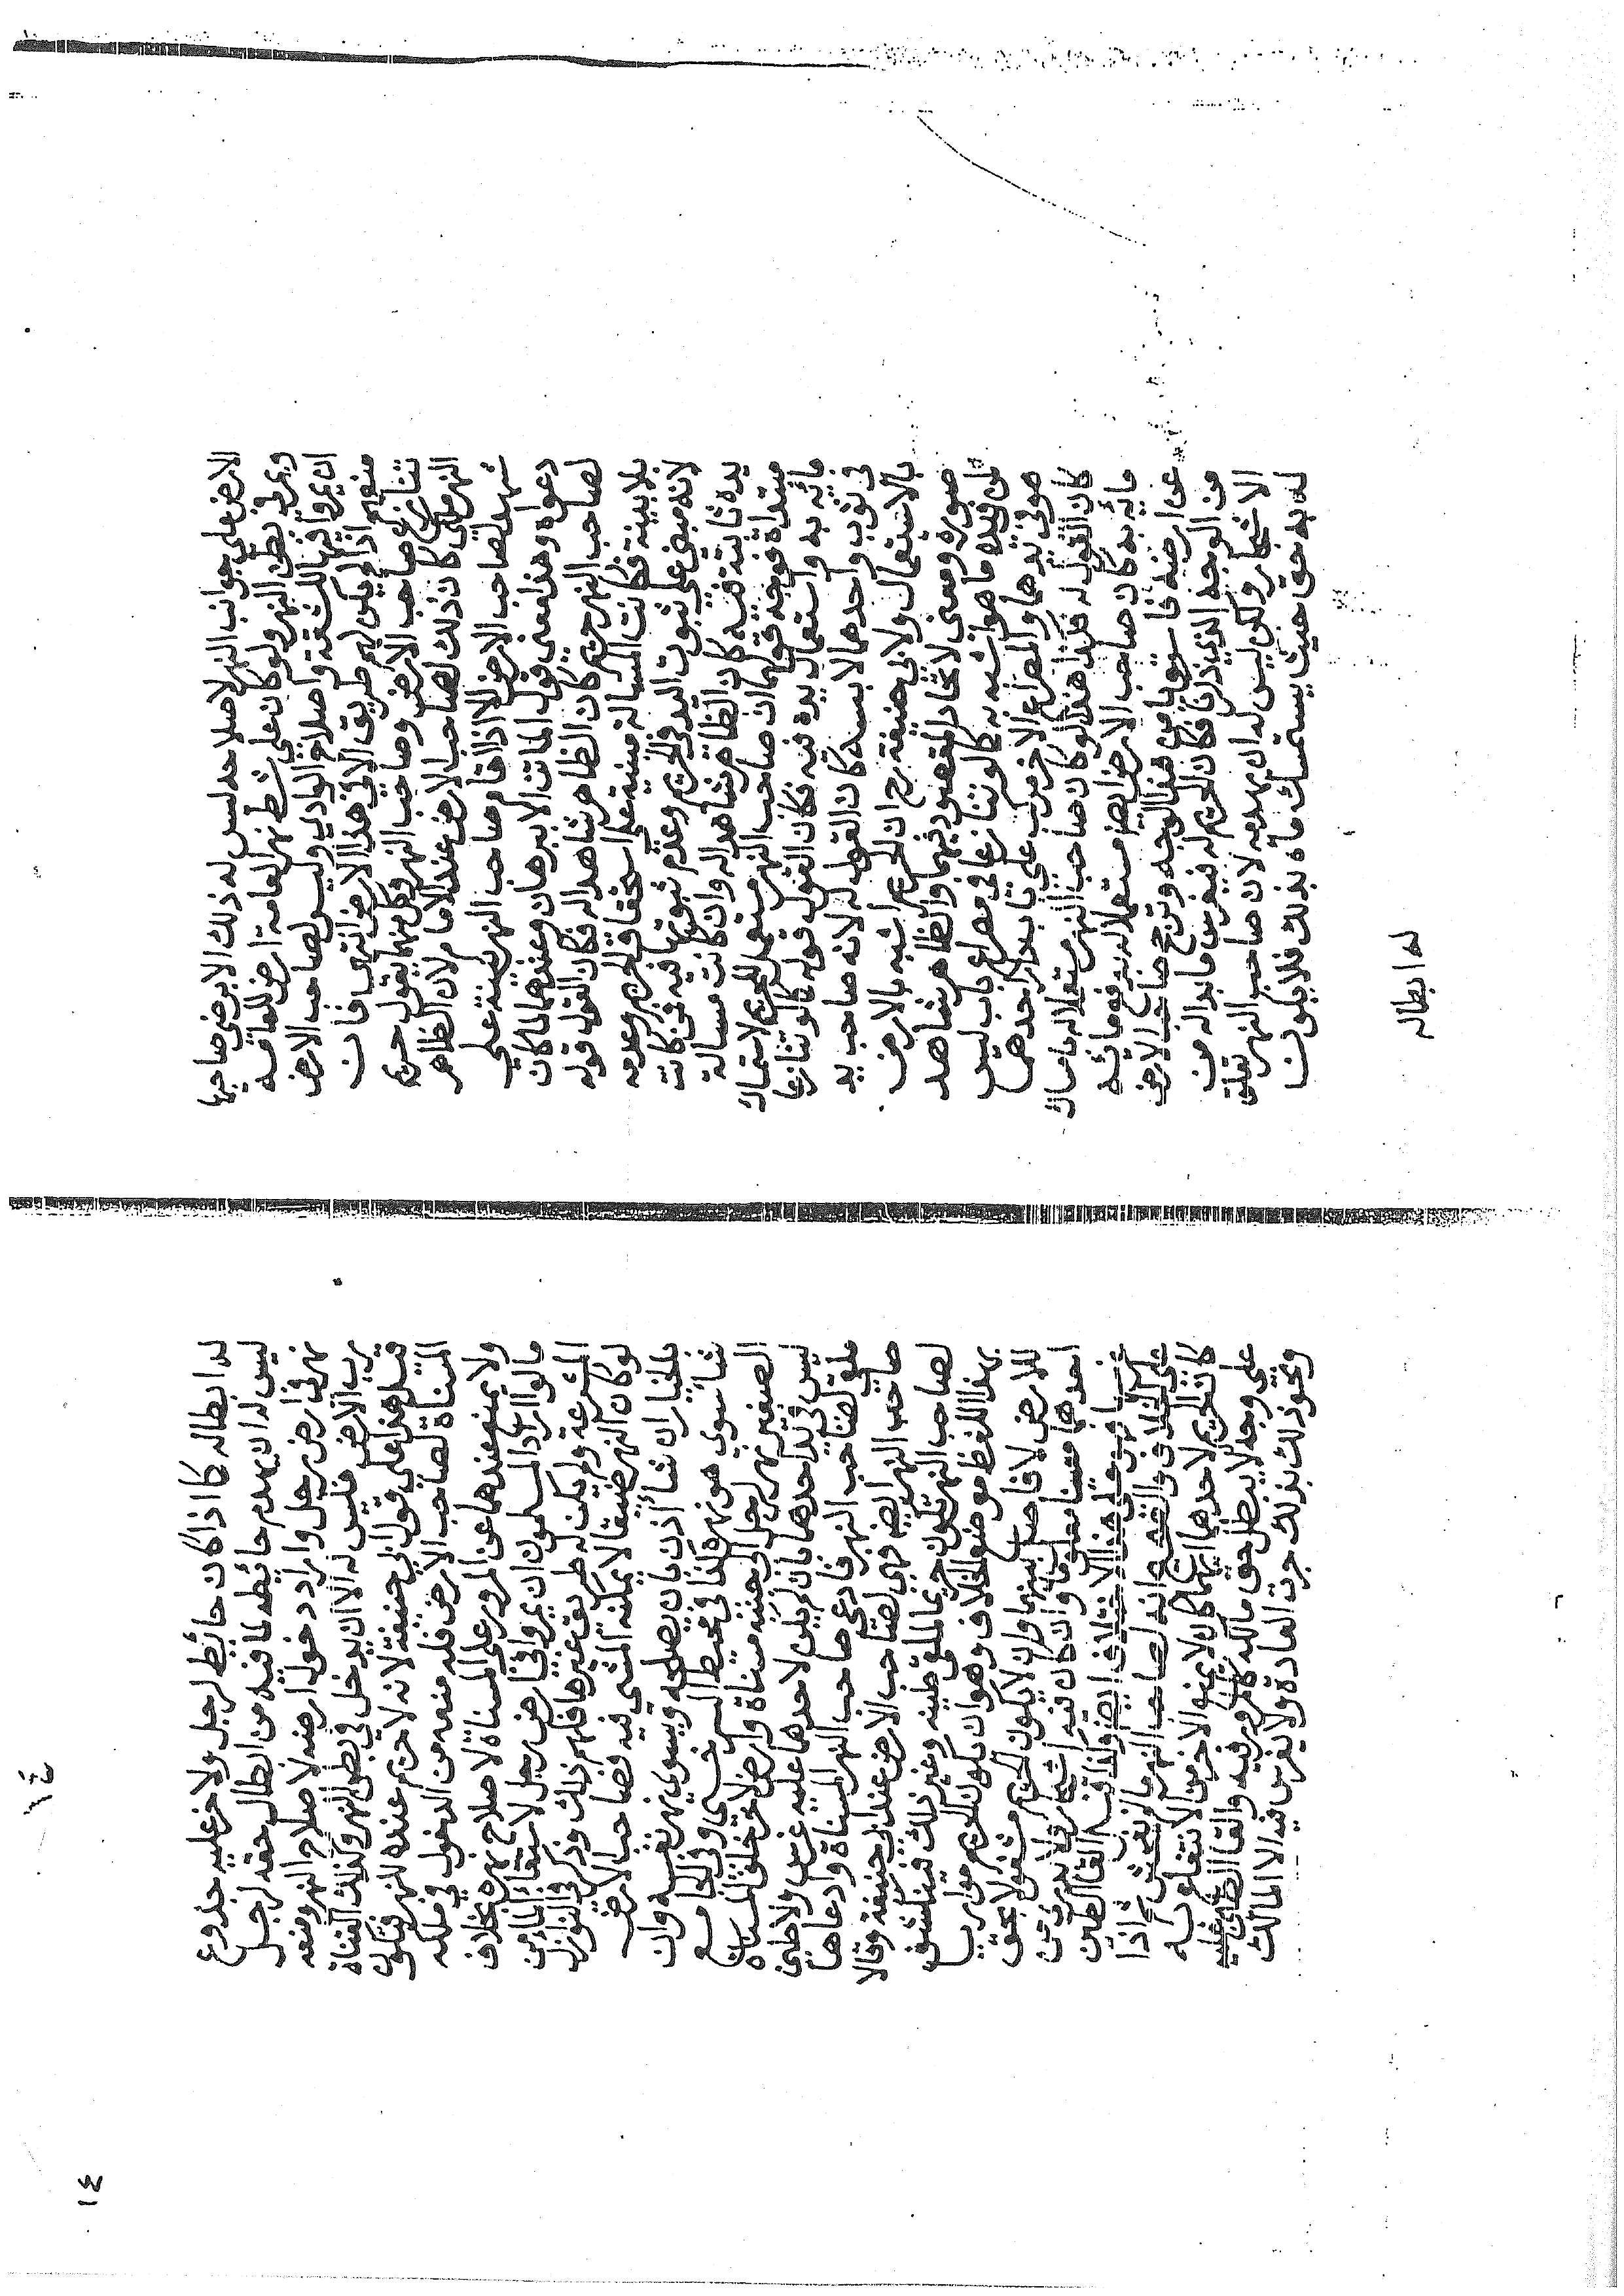 الارض على جوانب النهر لا صلاحد ليس له ذلك الا برضى صاحبها
ويمر في بطن النهر ولو كان على شط نهر العامة ارض للعامة
ان يمروا فيها للشفة واصلاح الوادي وليس لصاحب الارض
منعهم اذا لم يكن لهم طريق الا في هذا الارض انتهى فان
تنازع صاحب الارض وصاحب النهر وكل منهما يقول حريم
النهر ملكي كان ذلك لصاحب الارض عند الامام لان الظاهر
شهد لصاحب الارض الا اذا اقام صاحب النهر بينة على
دعواه وهذا معنى قول الماتن الا ببرهان وعندهما لما كان
لصاحب النهر حريم كان الظاهر شاهدا له فكان القول قوله
بلا بينة فكانت المسالة مبنية على استحقاق الحريم وعدمه
لانه مبنى على ثبوت اليد في الحريم وعدم ثبوتها فيه فمن كانت
يده ثابتة فيه كان الظاهر شاهدا له وان كانت مسالة
مبتداة فوجه قولهما ان صاحب النهر مستعمل للحريم لاستمساك
مائه به واستعمال يده فيه فكان القول قوله كما لو تنازعا
في ثوب واحدهما لابسه كان القول له لانه صاحب يد
بالاستعمال ولابي حنيفة رح ان الحريم اشبه بالارض
صورة ومعنى لاتحاد المقصود فيهما والظاهر شاهد
لمن في يده ما هو اشبه به كما لو تنازعا في مصراع باب ليس
هو في يدهما والمصراع الاخر مركب على باب دار احدهما
كان القول له فكذا هذا لو كان صاحب النهر مستعملا له بامساك
مائه به كان صاحب الارض ايضا مستعملا له بدفع مائه
عن ارضه فاستويا من هذا الوجه وترجح صاحب الارض
من الوجه الذي ذكرنا فكان الحريم له فيغرس ما بدا له من
الاشجار ولكن ليس له ان يهدمه لان صاحب النهر تعلق
له به حق حيث يستمسك ماؤه بذلك فلا يكون
له ابطاله
له ابطاله كما اذا كان حائط لرجل ولاخر عليه جذوع
ليس له ان يهدم حائطه لما فيه من ابطال حقه لرجل
نهر في ارض رجل واراد دخول ارضه لاصلاح النهر ومنعه
رب الارض فليس له الا ان يدخل في بطن النهر وكذلك القناة
قيل هذا على قول ابي حنيفة لانه لا حريم عنده للنهر فتكون
المسناة لصاحب الارض فله منعه من الدخول في ملكه
ولا يمنع عندهما عن المرور على المسناة لاصلاح نهره بخلاف
ما لو اراد المسلمون ان يمروا في ارض رجل لاستقاء الماء من
المشرعة ولم يكن له طريق غيرها فلهم ذلك وذكر في النوازل
لو كان النهر ضيقا لا يمكنه المشي فيه فصاحب الارض
بالخيار ان شاء اذن بان يصلحه ويسوي نهر نفسه وان
شاء سوي هو نهره كذا في محيط السرخسي وفي الجامع
الصغير نهر لرجل الى جنبه مسناة وارض لاخر خلف المسناة
ليس في يد احدهما بان لم يكن لاحدهما عليه غرس ولا طين
ملقى لصاحب النهر فادعى صاحب النهر المسناة وادعاها
صاحب النهر ايضا فهي لصاحب الارض عند ابي حنيفة وقالا
لصاحب النهر تكون حريما لملقى طينه وغير ذلك فينكشف
بهذا اللفظ موضع الخلاف وهو ان يكون الحريم موازيا
للارض لا فاصل بينهما وان لا يكون الحريم مشغولا بحق
احدهما معينا معلوما وان كان فيه اشجار ولا يدري من
غرسها فهو على هذا الاختلاف ايضا وكذا قيل القاء الطين
على الخلاف والصحيح انه لصاحب النهر ما لم يفحش ثم اذا
كان الحريم لاحدهما ايهما كان لا يمنع الاخر من الانتفاع به
على وجه لا يبطل حق مالكه كالمرور فيه والقاء الطين عليه
ونحو ذلك بذلك جرت العادة ولا يغرس فيه الا المالك
١٤